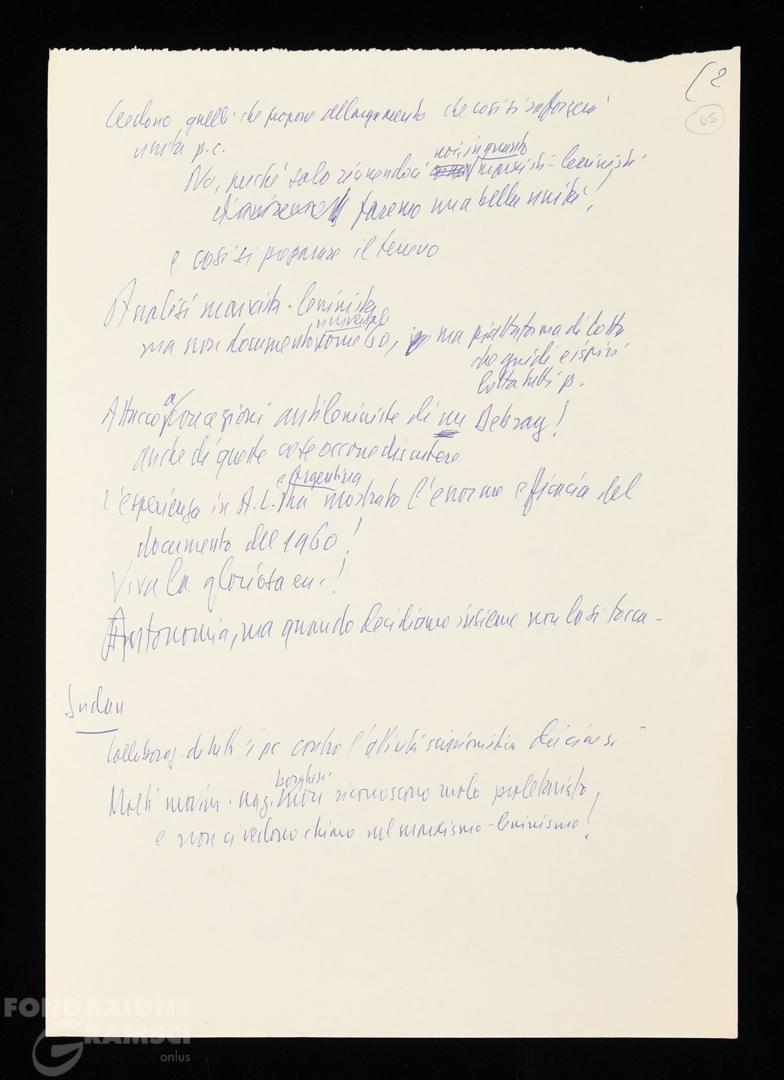 (2
65
Credono quelli che propone allargamento che così si rafforzerà
unità p.c.
No, perché solo riunendoci noi, in quanto marxisti-leninisti
faremo una bella unità!
e così si preparare il terreno
Analisi marxista-leninista
ma non documento universale, ma piattaforma di lotta
che guidi e ispiri
lotta tutti p.
Attacco a concezioni antileniniste di un Debray!
anche di queste cose occorre discutere
L'esperienza in A.L. e Argentina ha mostrato l'enorme efficacia del
documento del 1960!
Viva la gloriosa
Autonomia, ma quando decidiamo insieme non la si tocca -
Sudan
Collaboraz. di tutti i pc contro l'attività scissionistica dei cinesi
Molti movim. naz. borghesi riconoscono ruolo proletariato,
e non ci vedono chiaro sul marxismo-leninismo!
FONDAZIONE
GRAMSCI
onlus